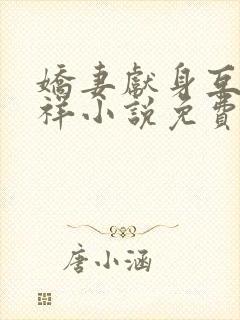 嬌妻獻身互
祥小說免費
唐小涵